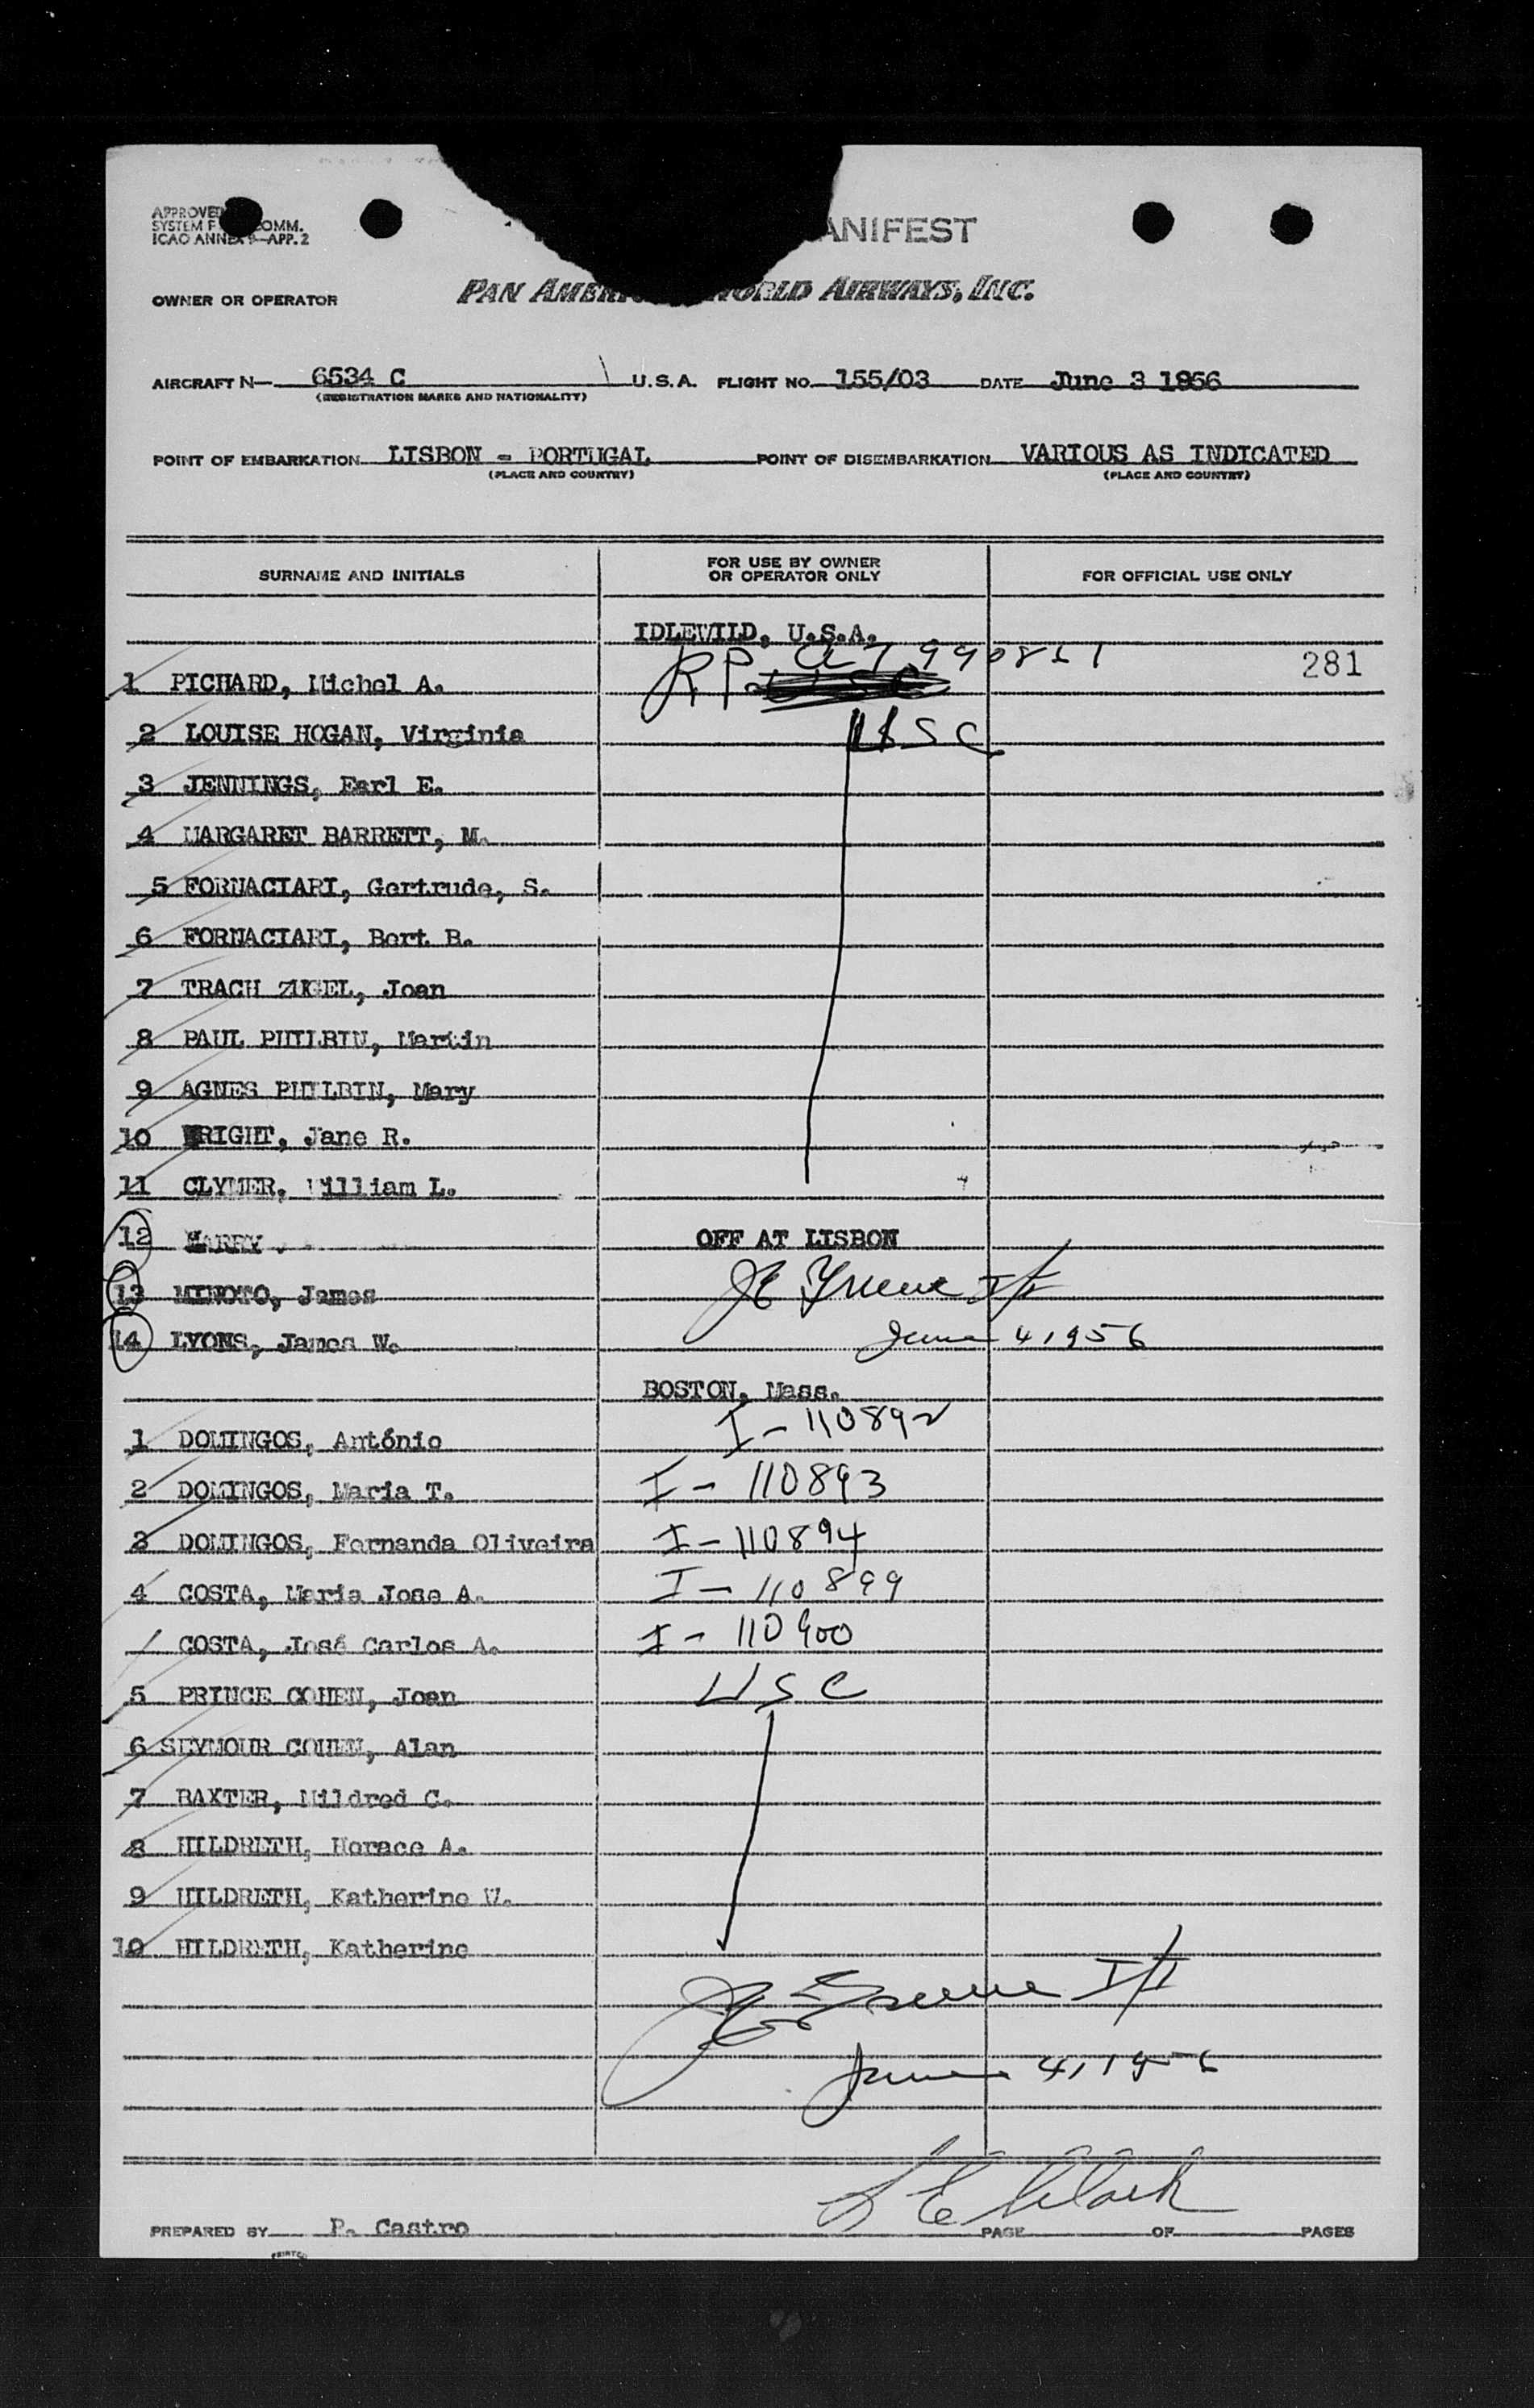 APPROVED
SYSTEM F OMM.
ICAO ANNEX 9—APP. 2
ANIFEST
OWNER OR OPERATOR PAN AMERI WORLD AIRWAYS, INC.
AIRCRAFT N— 6534 C U.S.A. FLIGHT NO. 155/03 DATE June 3 1956
(REGISTRATION MARKS AND NATIONALITY)
POINT OF EMBARKATION LISBON - PORTUGAL POINT OF DISEMBARKATION VARIOUS AS INDICATED
(PLACE AND COUNTRY) (PLACE AND COUNTRY)
SURNAME AND INITIALS FOR USE BY OWNER OR OPERATOR ONLY FOR OFFICIAL USE ONLY
IDLEWILD, U.S.A.
1 PICHARD, Michel A. RP. 281
2 LOUISE HOGAN, Virginia USC
3 JENNINGS, Earl E.
4 MARGARET BARRETT, M.
5 FORNACIARI, Gertrude, S.
6 FORNACIARI, Bert B.
7 TRACH ZUGEL, Joan
8 PAUL PHILBIN, Martin
9 AGNES PHILBIN, Mary
10 WRIGHT, Jane R.
11 CLYMER, William L.
12 HARRY OFF AT LISBON
13 MINOTO, James
14 LYONS, James W. June 4, 1956
BOSTON, Mass.
1 DOMINGOS, António I - 110892
2 DOMINGOS, Maria T. I - 110893
3 DOMINGOS, Fernanda Oliveira I - 110894
4 COSTA, Maria Jose A. I - 110899
/ COSTA, José Carlos A. I - 110900
5 PRINCE COHEN, Joan USC
6 SEYMOUR COHEN, Alan
7 BAXTER, Mildred C.
8 HILDRETH, Horace A.
9 HILDRETH, Katherine W.
10 HILDRETH, Katherine
June 4, 1956
PREPARED BY P. Castro PAGE OF PAGES